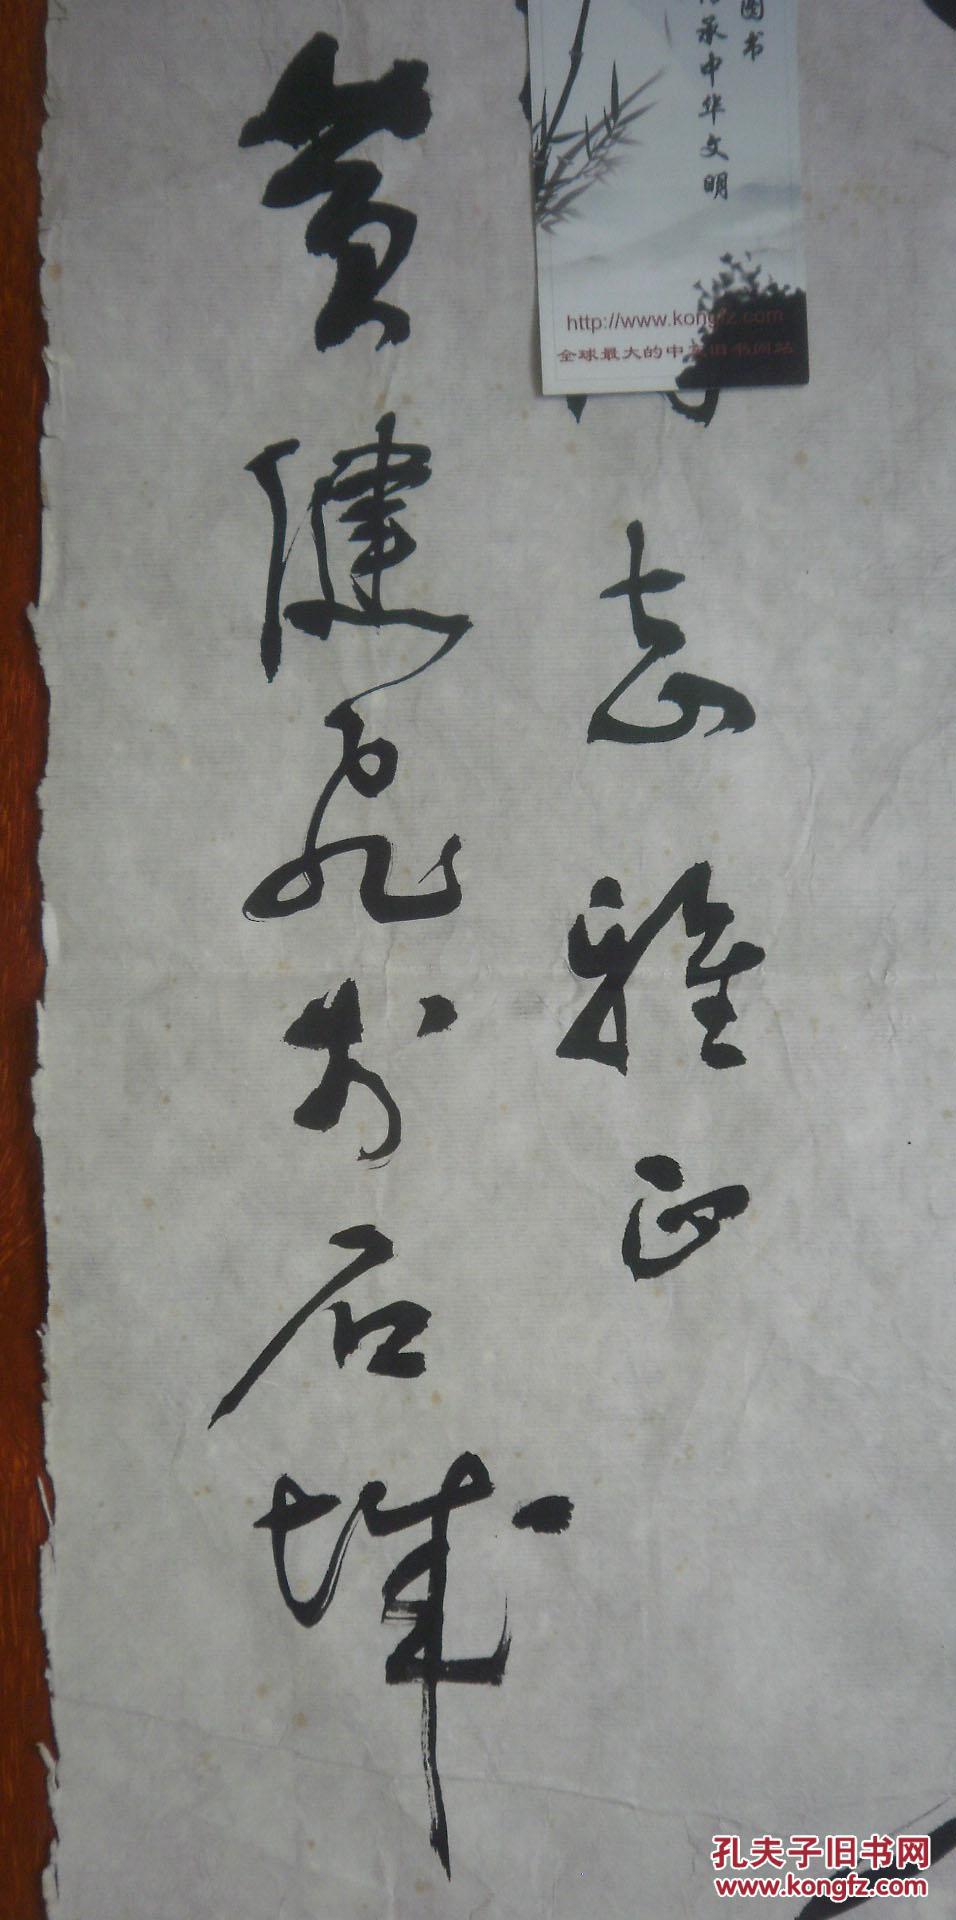 志雅正
黄健飞书石城
图书
承中华文明
http://www.kongfz.com
全球最大的中文旧书网站
孔夫子旧书网
www.kongfz.com